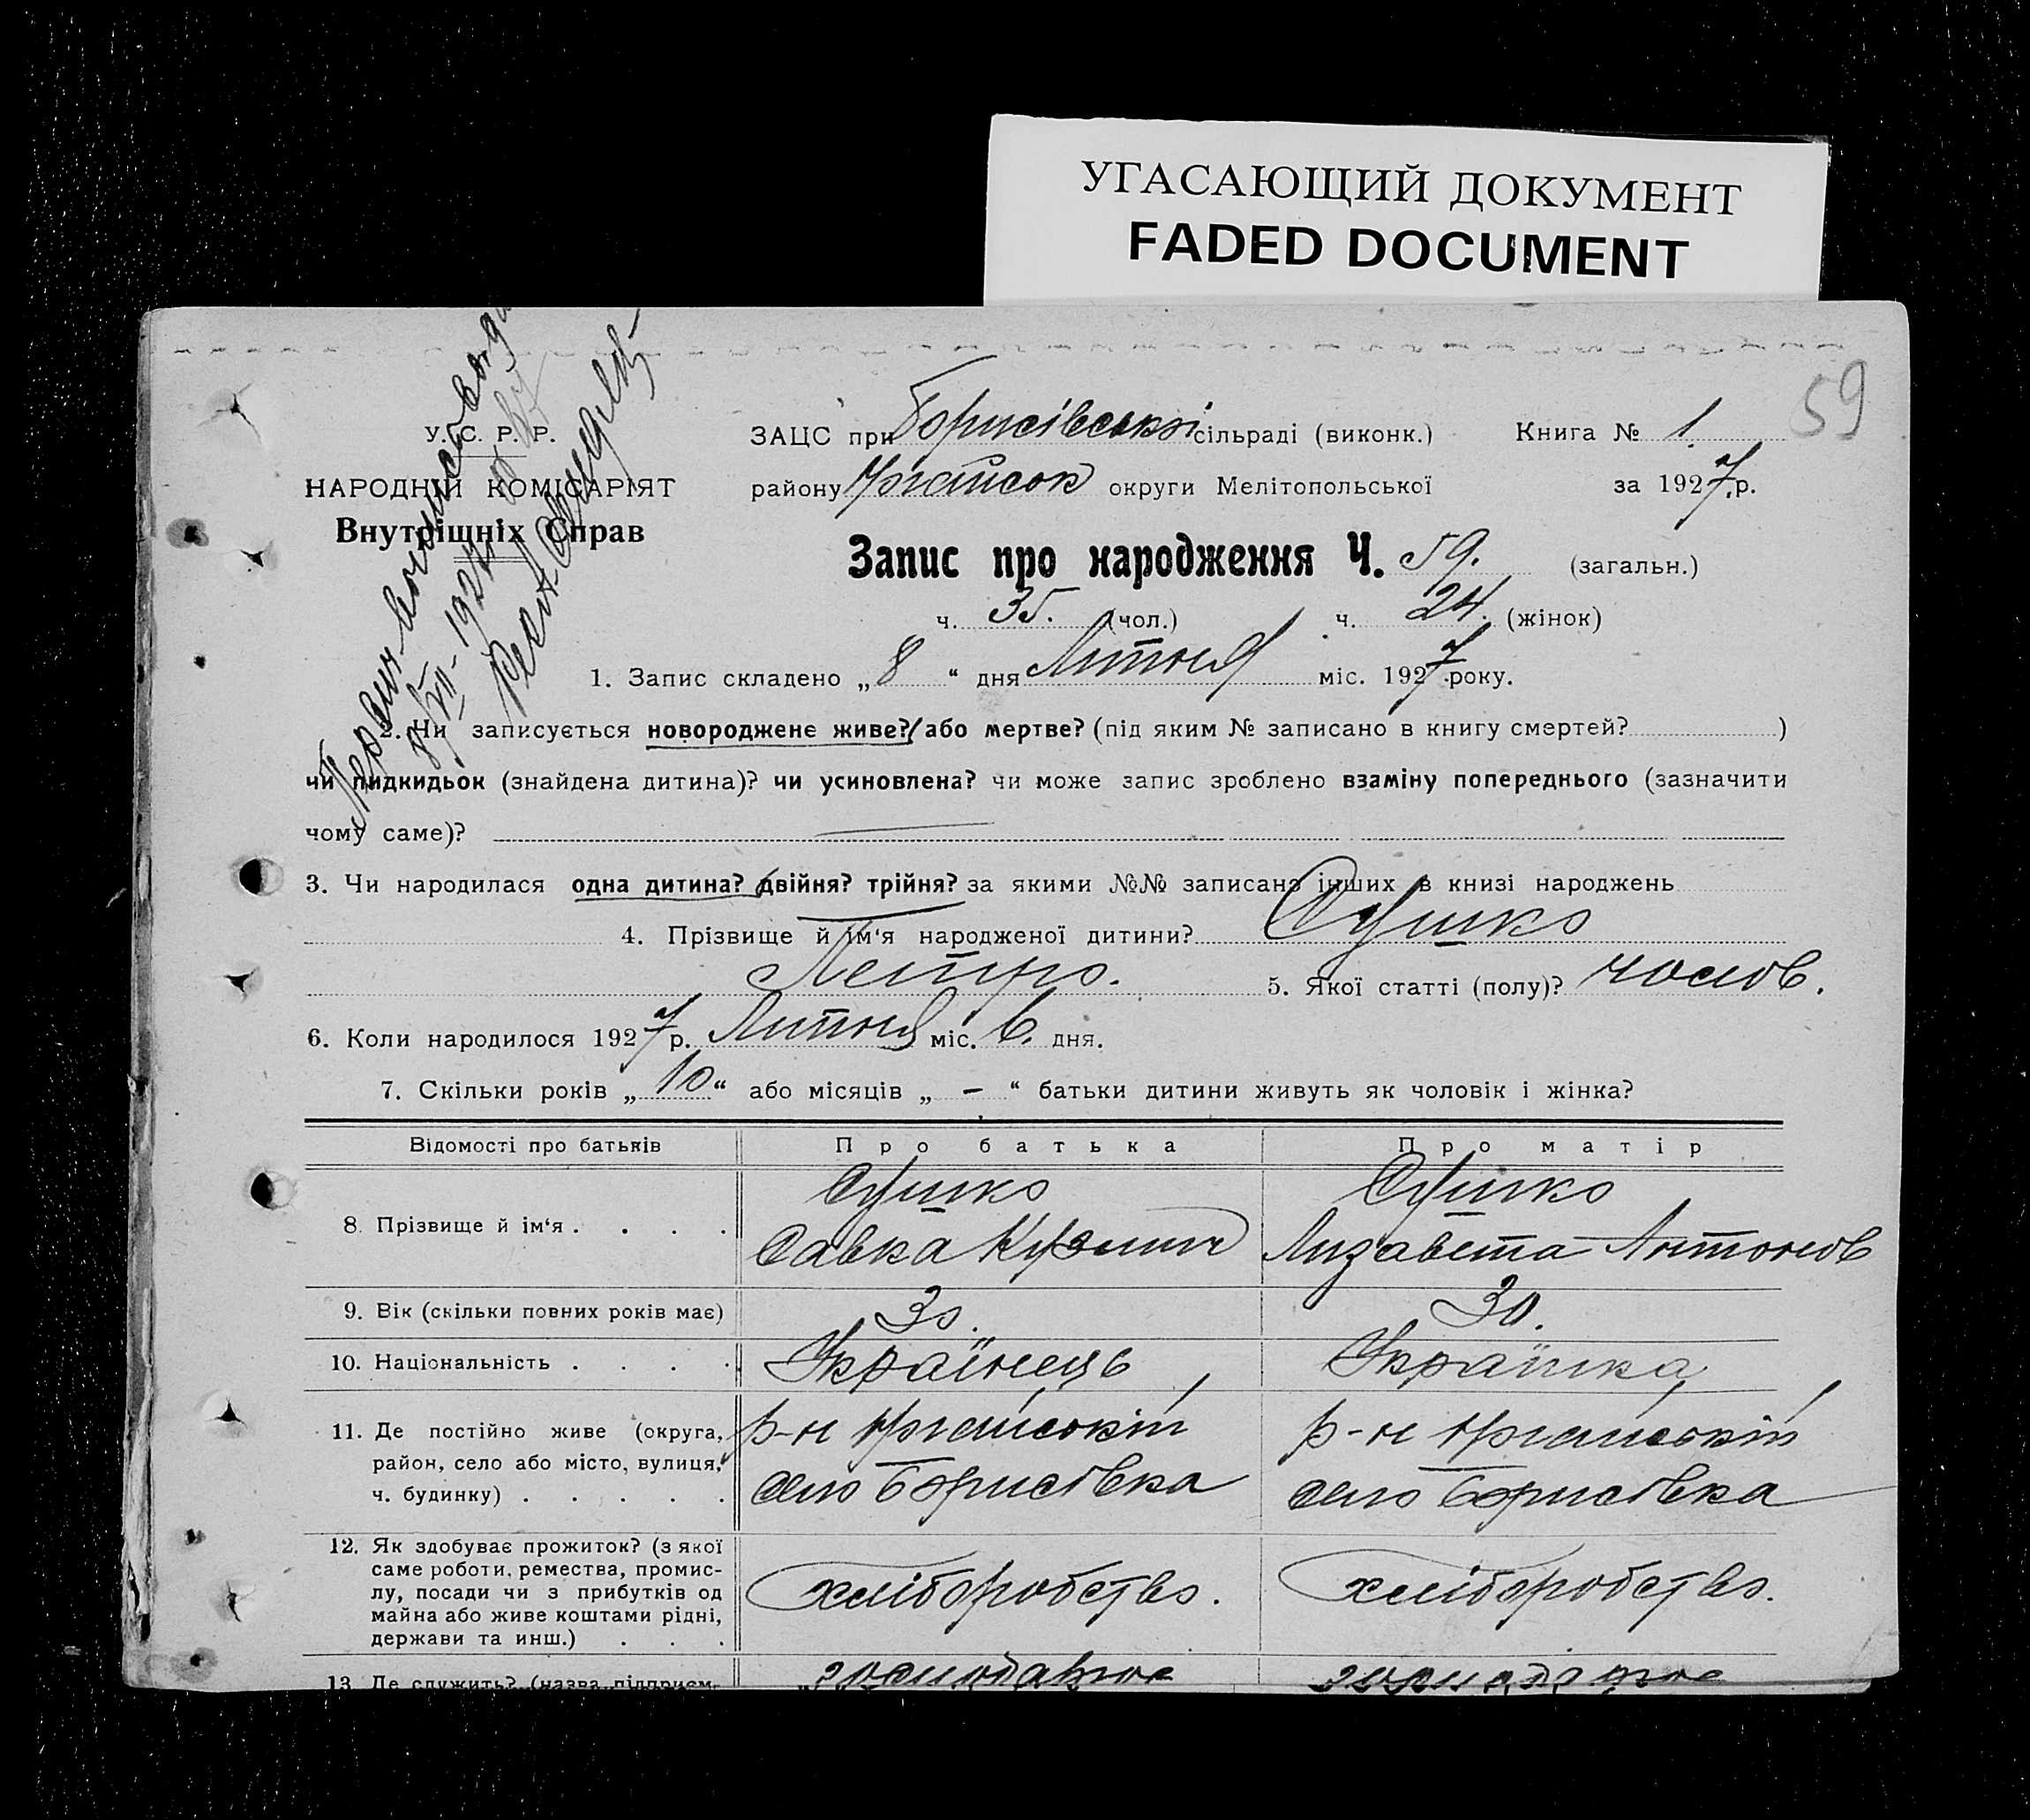 УГАСАЮЩИЙ ДОКУМЕНТ
FADED DOCUMENT
59
У. С. Р. Р.
НАРОДНІЙ КОМІСАРІЯТ
Внутрішніх Справ
ЗАЦС при Борисівській сільраді (виконк.) Книга № 1.
району округи Мелітопольської за 1927 р.
Запис про народження Ч. 59. (загальн.)
ч. 35. (чол.) ч. 24. (жінок)
1. Запис складено „ 8 “ дня Липня міс. 1927 року.
2. Чи записується новороджене живе? або мертве? (під яким № записано в книгу смертей? )
чи підкидьок (знайдена дитина)? чи усиновлена? чи може запис зроблено взаміну попереднього (зазначити
чому саме)?
3. Чи народилася одна дитина? двійня? трійня? за якими №№ записано інших в книзі народжень
4. Прізвище й ім'я народженої дитини? Сушко
Петро. 5. Якої статті (полу)? чолов.
6. Коли народилося 1927 р. Липня міс. 6. дня.
7. Скільки років „ 10 “ або місяців „ - “ батьки дитини живуть як чоловік і жінка?
Відомості про батьків Про батька Про матір
8. Прізвище й ім'я . . . . Сушко Сушко
Савка Кузьмич Лизавета Антонов
9. Вік (скільки повних років має) 30. 30.
10. Національність . . . . Українець Українка
11. Де постійно живе (округа, р-н р-н
район, село або місто, вулиця,
ч. будинку) . . . . . село Борисівка село Борисівка
12. Як здобуває прожиток? (з якої
саме роботи, ремества, промис-
лу, посади чи з прибутків од хліборобство. хліборобство.
майна або живе коштами рідні,
держави та инш.) . . .
13. Де служить? (назва підприєм-